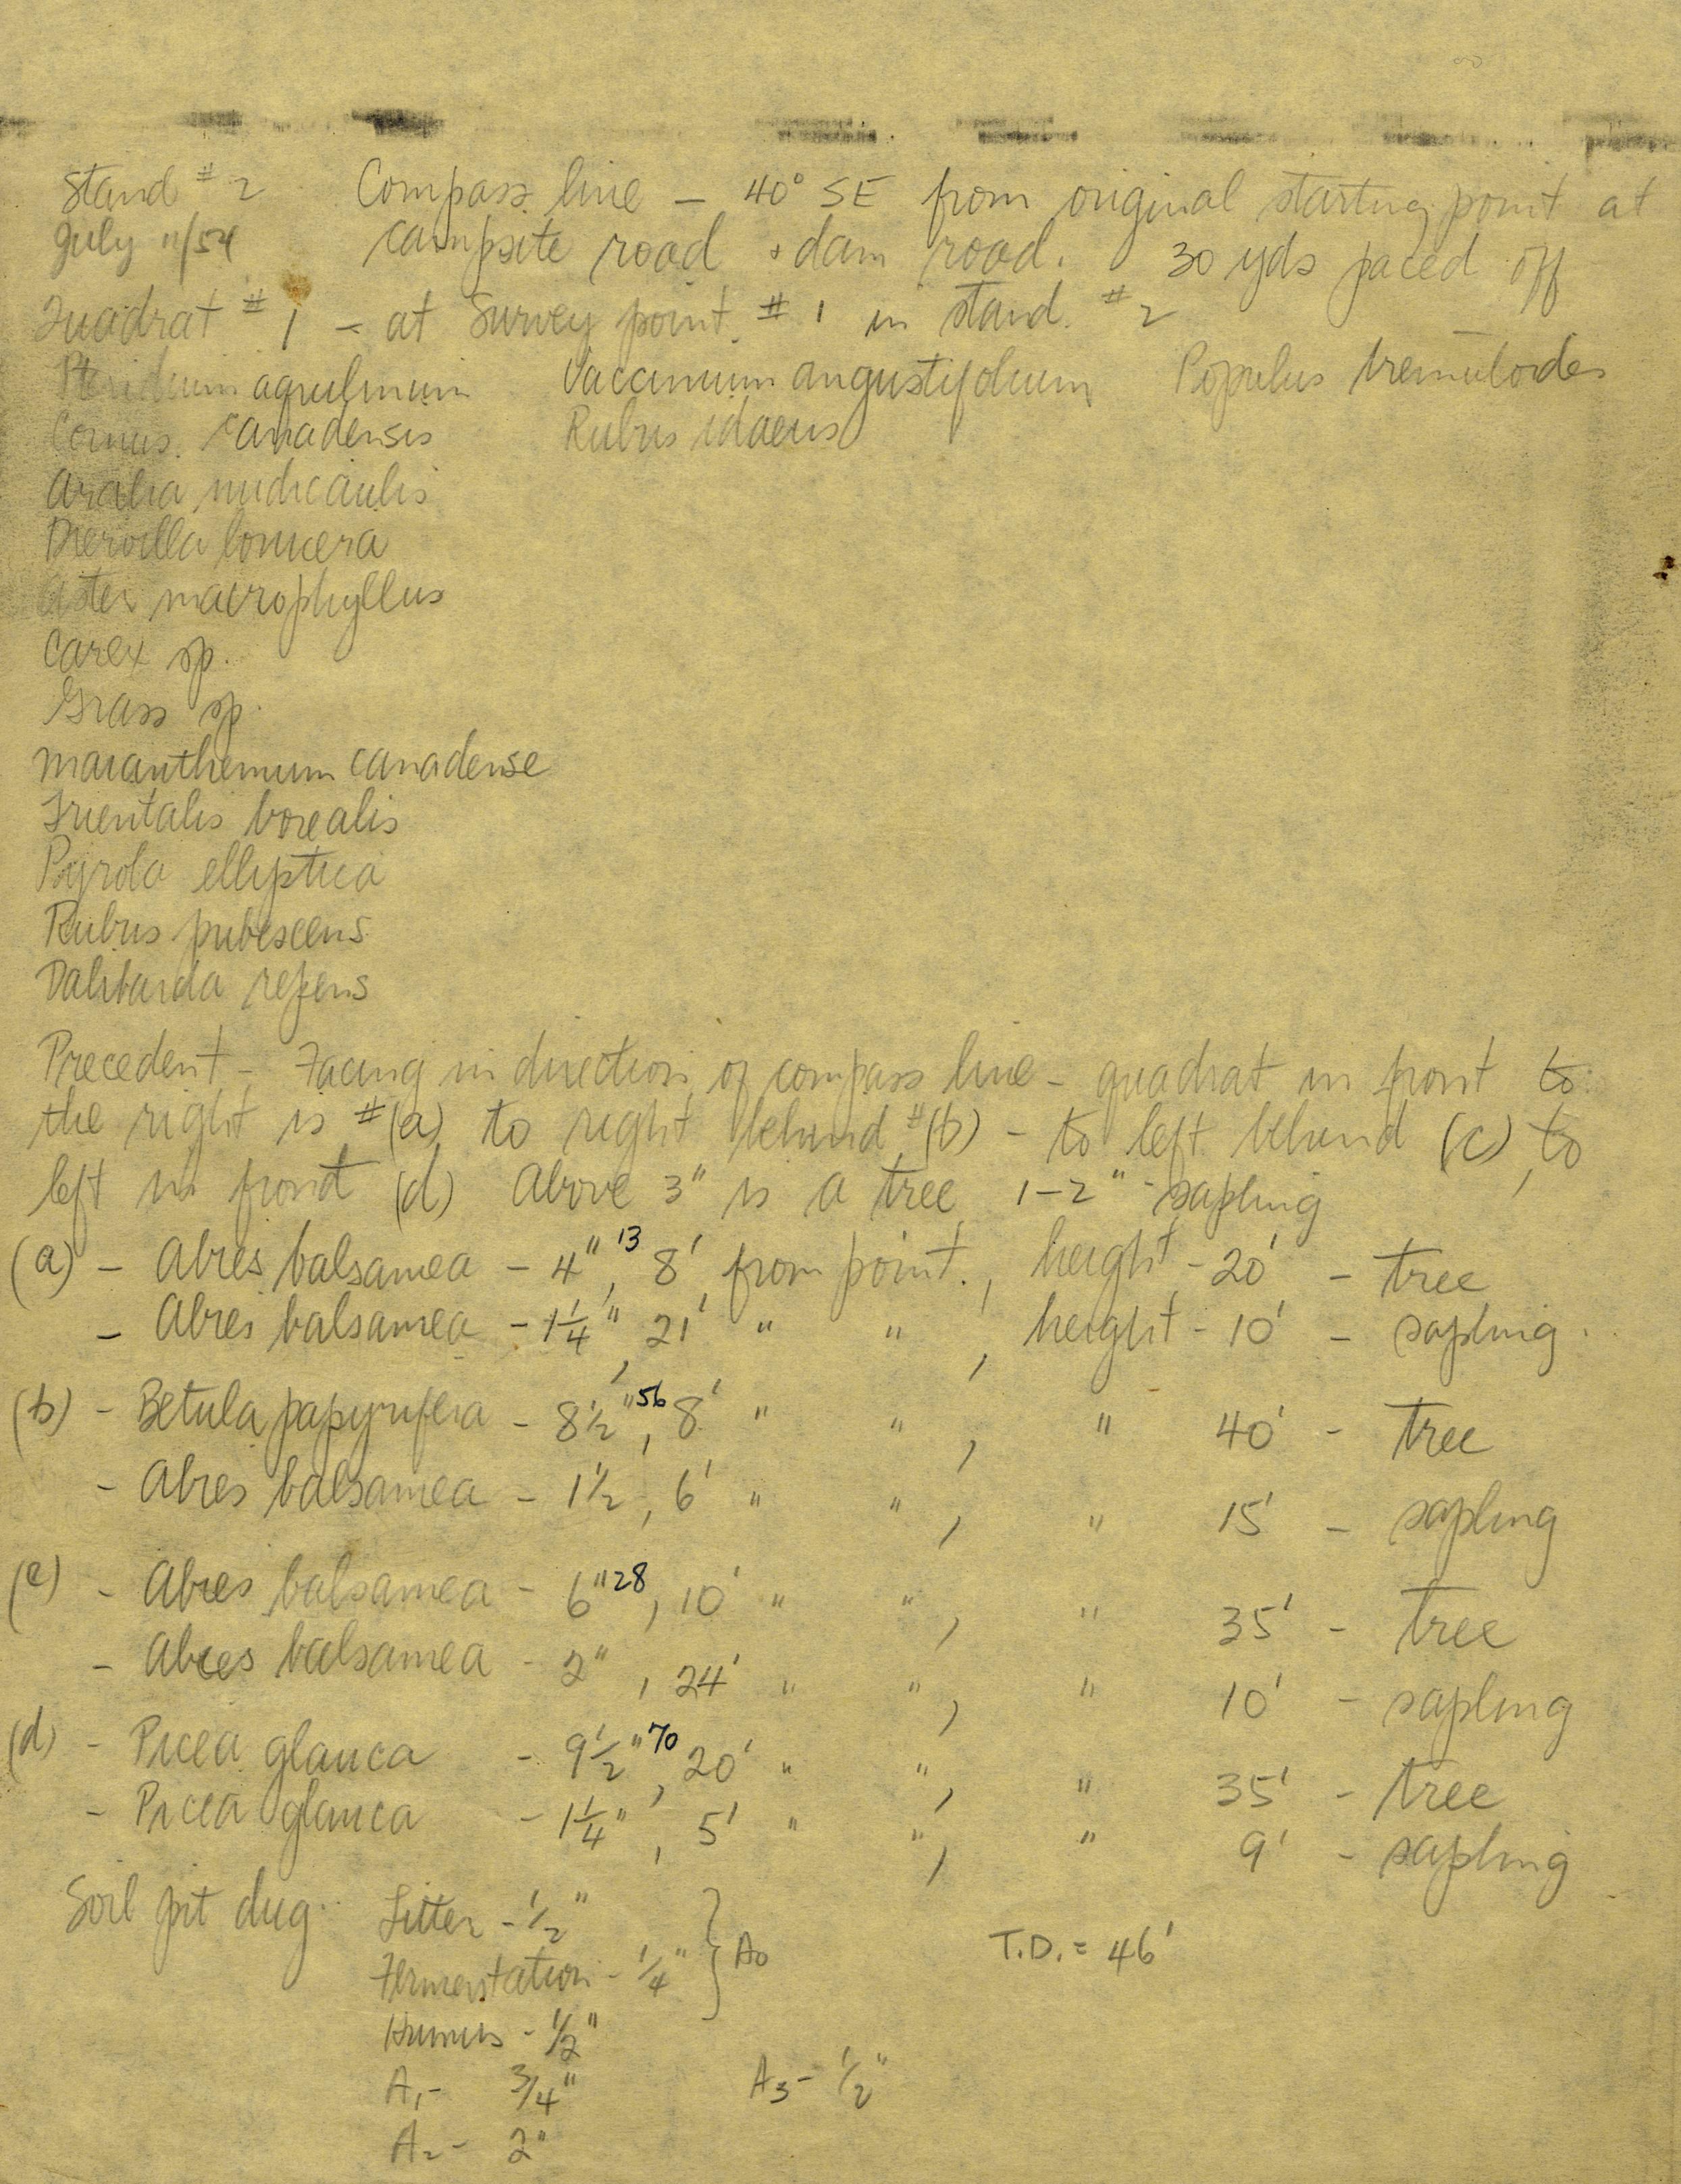 Stand # 2 Compass line – 40° SE from original starting point at
July 11/54 campsite road + dam road. 30 yds paced off
Quadrat # 1 – at Survey point # 1 in stand # 2
Pteridium aquilinum Vaccinium angustifolium Populus tremuloides
Cornus canadensis Rubus idaeus
Aralia nudicaulis
Diervilla lonicera
Aster macrophyllus
Carex sp.
Grass sp.
Maianthemum canadense
Trientalis borealis
Pyrola elliptica
Rubus pubescens
Dalibarda repens
Precedent – Facing in direction of compass line – quadrat in front to
the right is #(a) to right behind #(b) – to left behind (c), to
left in front (d) Above 3" is a tree 1–2" - sapling
(a) – Abies balsamea – 4" 13, 8' from point., height – 20' – tree
– Abies balsamea – 1 1/4", 21' " ", height – 10' – sapling.
(b) – Betula papyrifera – 8 1/2" 56, 8' " ", " 40' – tree
– Abies balsamea – 1 1/2, 6' " ", " 15' – sapling
(c) – Abies balsamea – 6" 28, 10' " ", " 35' – tree
– Abies balsamea – 2", 24' " ", " 10' – sapling
(d) – Picea glauca – 9 1/2" 70, 20' " ", " 35' – tree
– Picea glauca – 1 1/4", 5' " ", " 9' – sapling
Soil pit dug. Litter – 1/2"
Fermentation – 1/4" } A0 T.D. = 46'
Humus – 1/2"
A1 – 3/4" A3 – 1/2"
A2 – 2"